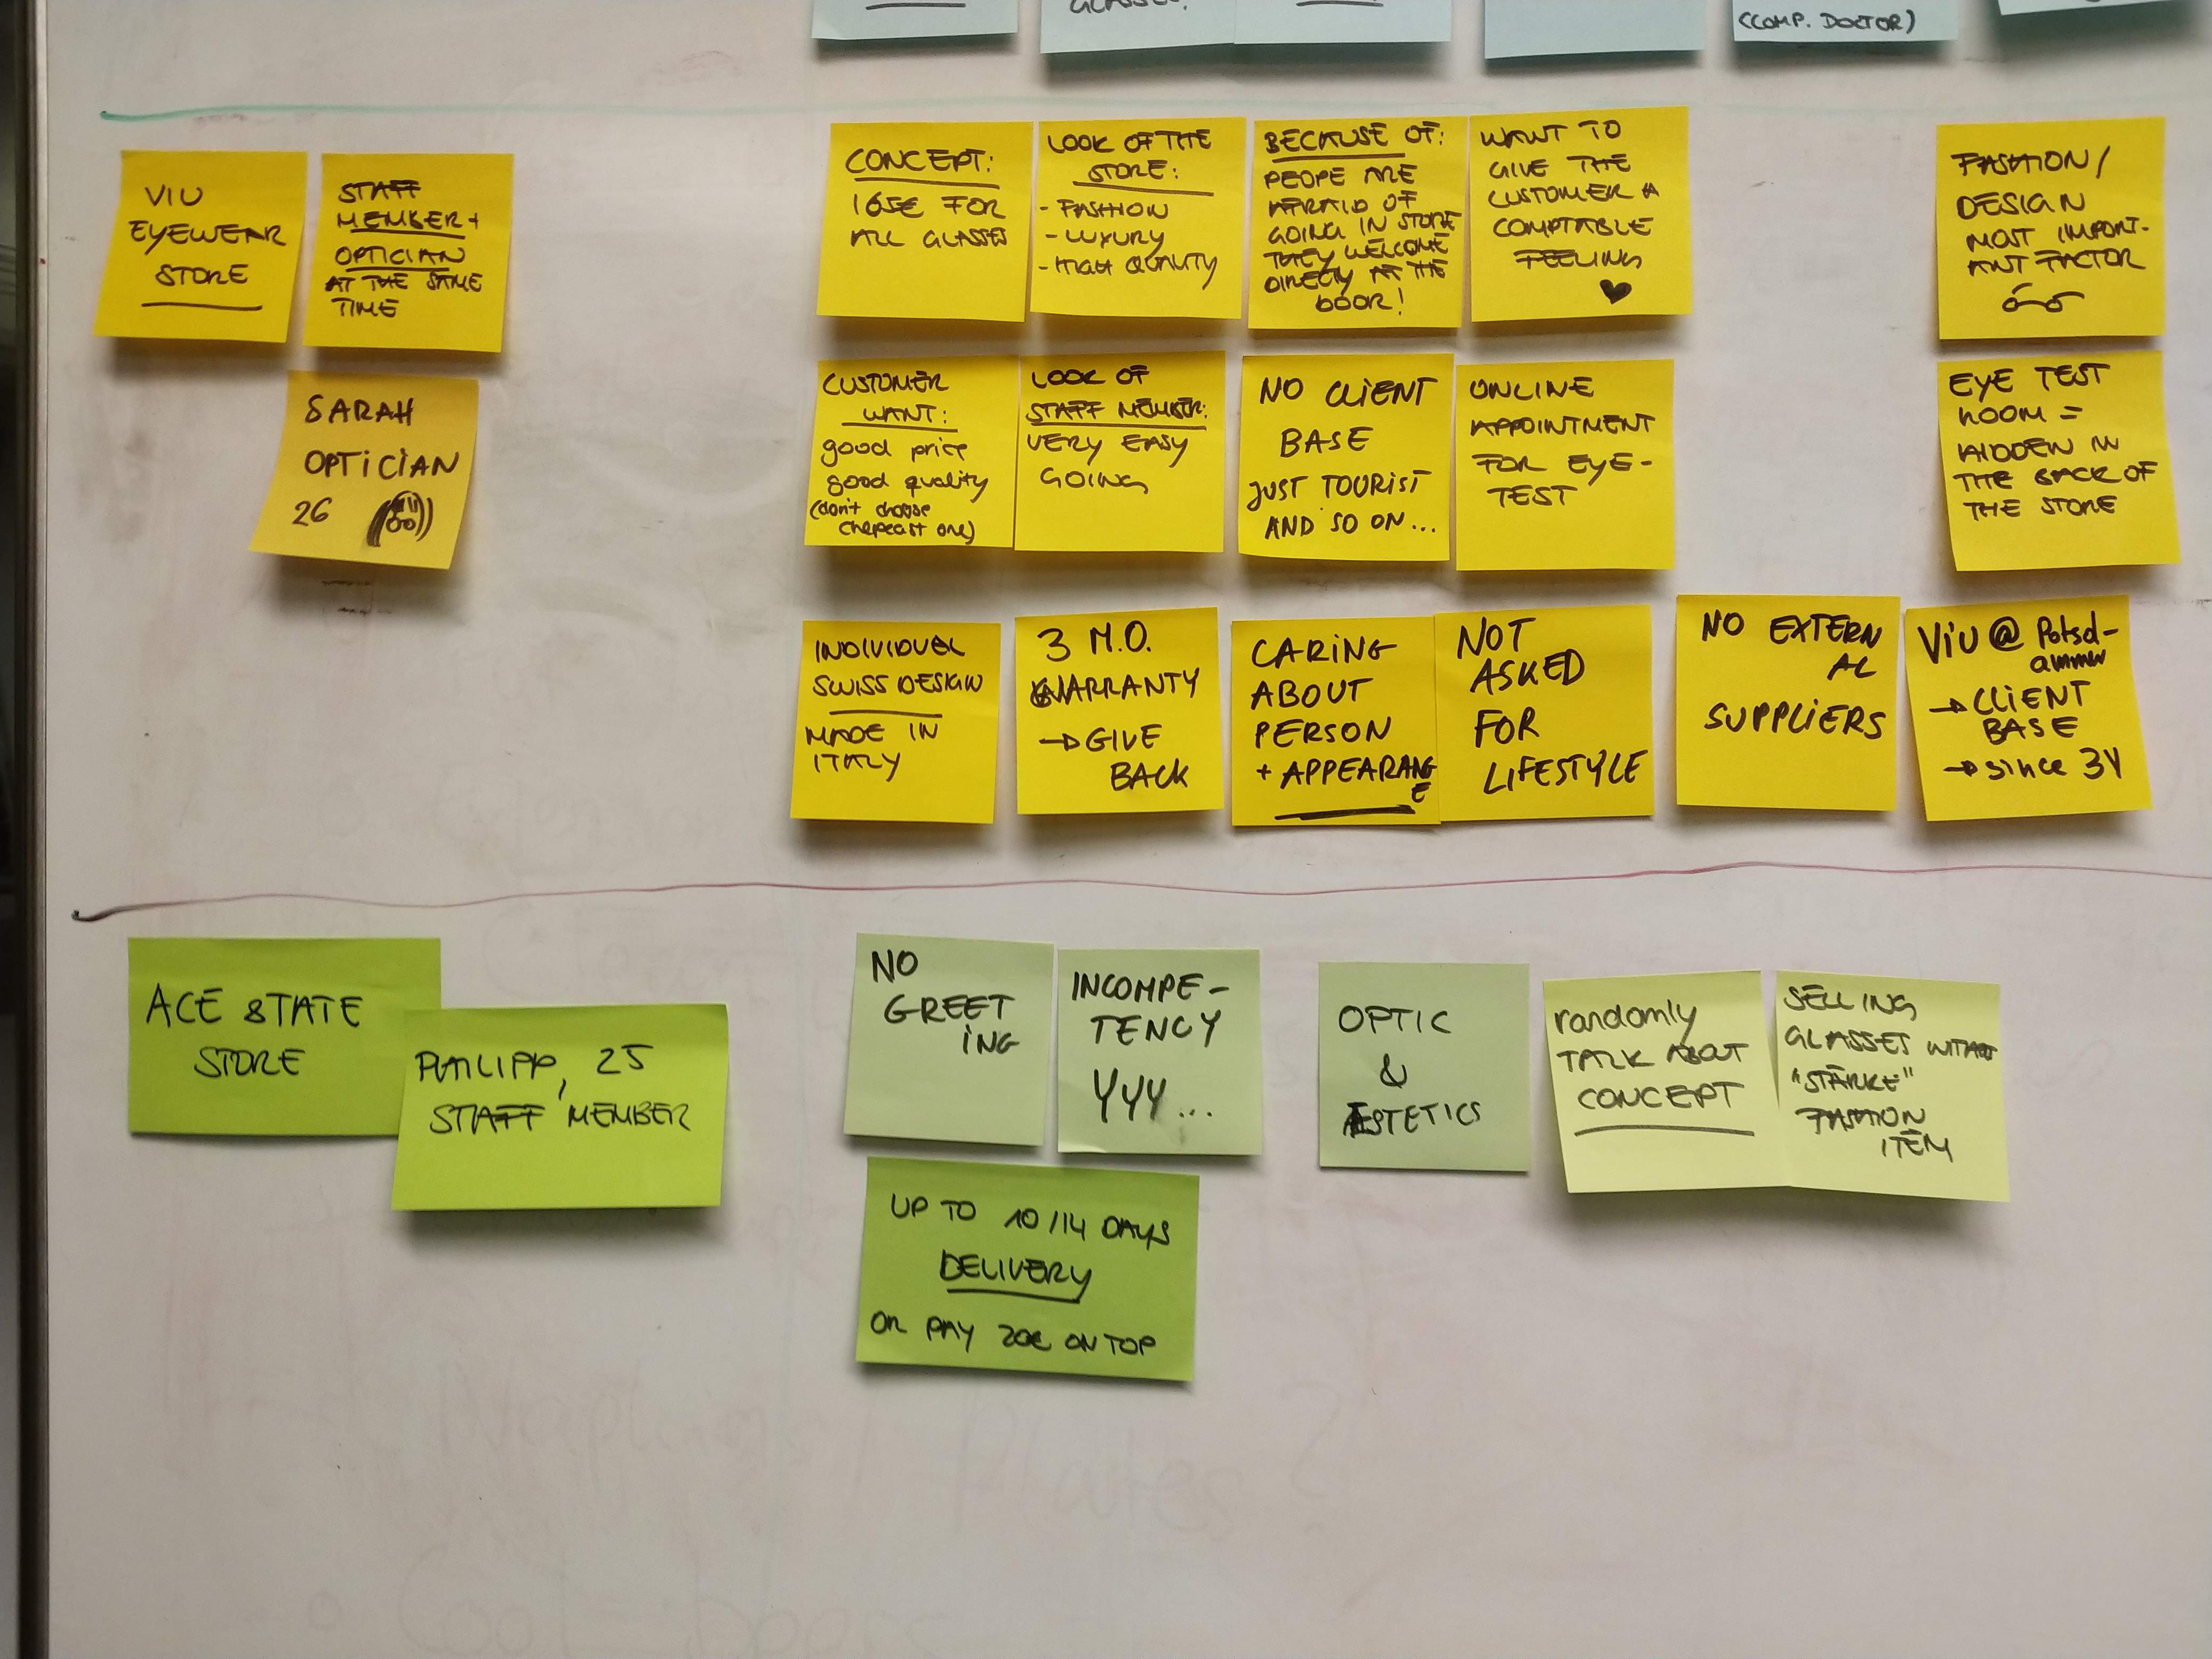 (COMP. DOCTOR)
VIU
EYEWEAR
STORE
STAFF
MEMBER +
OPTICIAN
AT THE SAME
TIME
SARAH
OPTICIAN
26
CONCEPT:
165€ FOR
ALL GLASSES
LOOK OF THE
STORE:
- FASHION
- LUXURY
- HIGH QUALITY
BECAUSE OF:
PEOPE ARE
AFRAID OF
GOING IN STORE
THEY WELCOME
DIRECTLY AT THE
DOOR!
WANT TO
GIVE THE
CUSTOMER A
COMPTABLE
FEELING
FASHION/
DESIGN
MOST IMPORT-
ANT FACTOR
CUSTOMER
WANT:
good price
good quality
(don't choose
cheapeast one)
LOOK OF
STAFF MEMBER:
VERY EASY
GOING
NO CLIENT
BASE
JUST TOURIST
AND SO ON...
ONLINE
APPOINTMENT
FOR EYE-
TEST
EYE TEST
ROOM =
HIDDEN IN
THE BACK OF
THE STORE
INDIVIDUEL
SWISS DESIGN
MADE IN
ITALY
3 M.O.
WARRANTY
→ GIVE
BACK
CARING
ABOUT
PERSON
+ APPEARANC
E
NOT
ASKED
FOR
LIFESTYLE
NO EXTERN
AL
SUPPLIERS
ViU @ Potsd-
ammer
→ CLIENT
BASE
→ since 3Y
ACE & TATE
STORE
PHILIPP, 25
STAFF MEMBER
NO
GREET
ING
INCOMPE-
TENCY
YYY...
OPTIC
&
ESTETICS
randomly
TALK ABOUT
CONCEPT
SELLING
GLASSES WITHOUT
"STÄRKE"
FASHION
ITEM
UP TO 10/14 DAYS
DELIVERY
OR PAY 20€ ON TOP